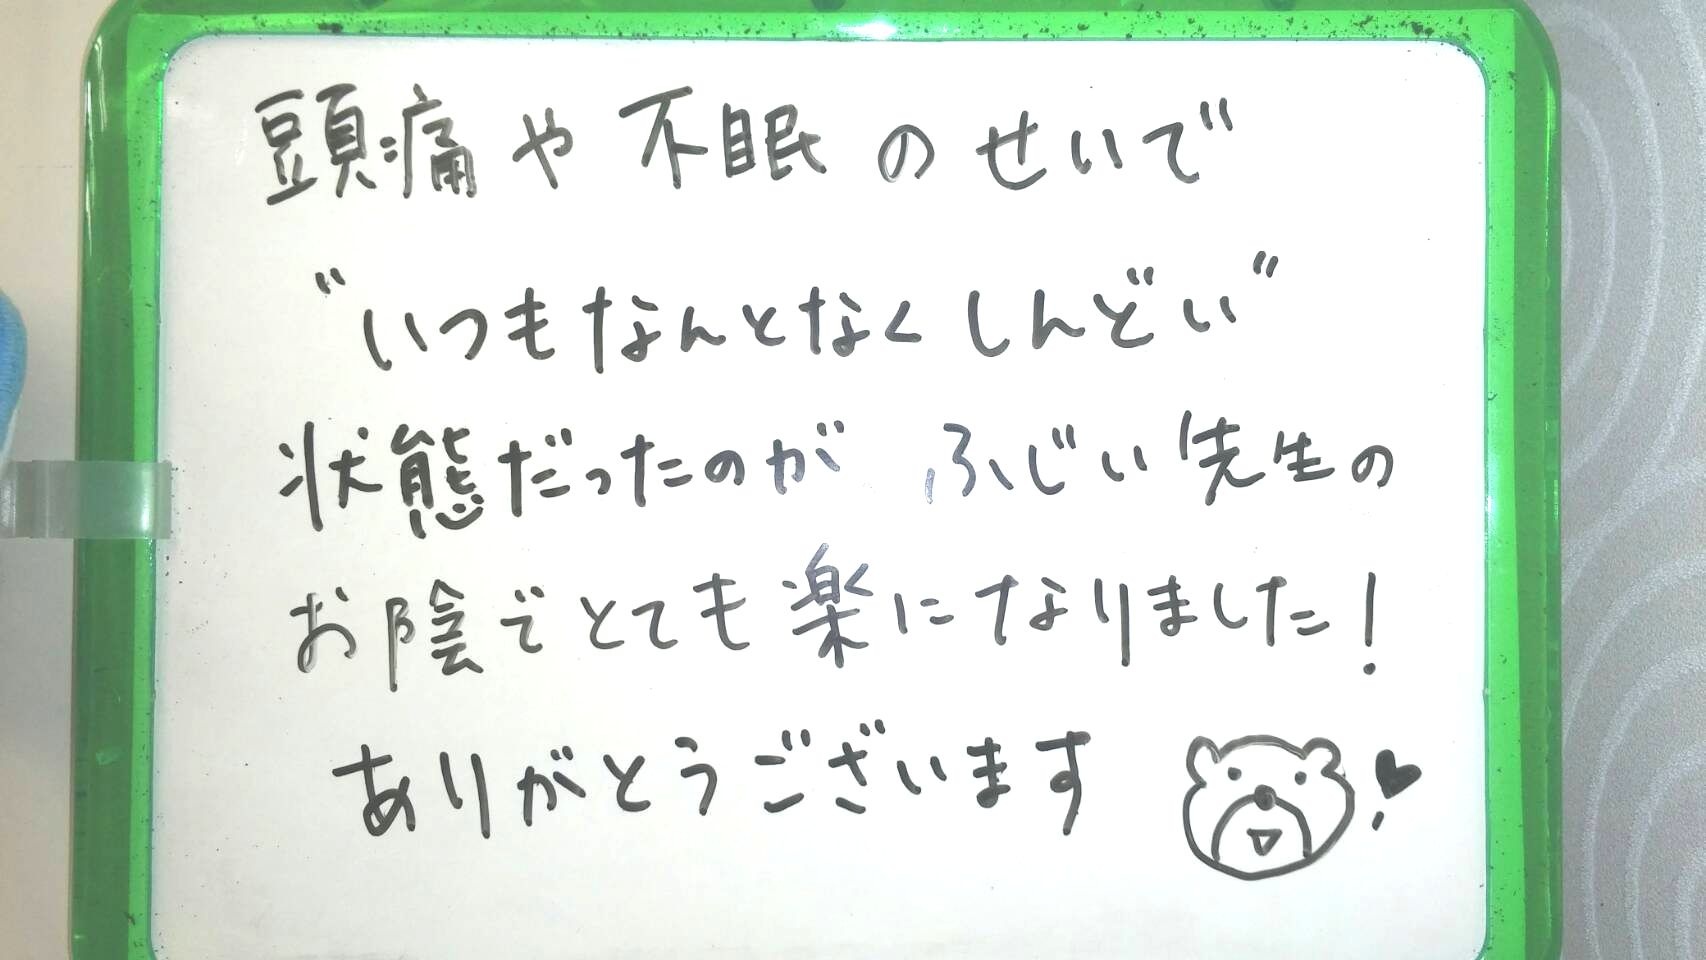 頭痛や不眠のせいで
"いつもなんとなくしんどい"
状態だったのが ふじい先生の
お陰でとても楽になりました!
ありがとうございます